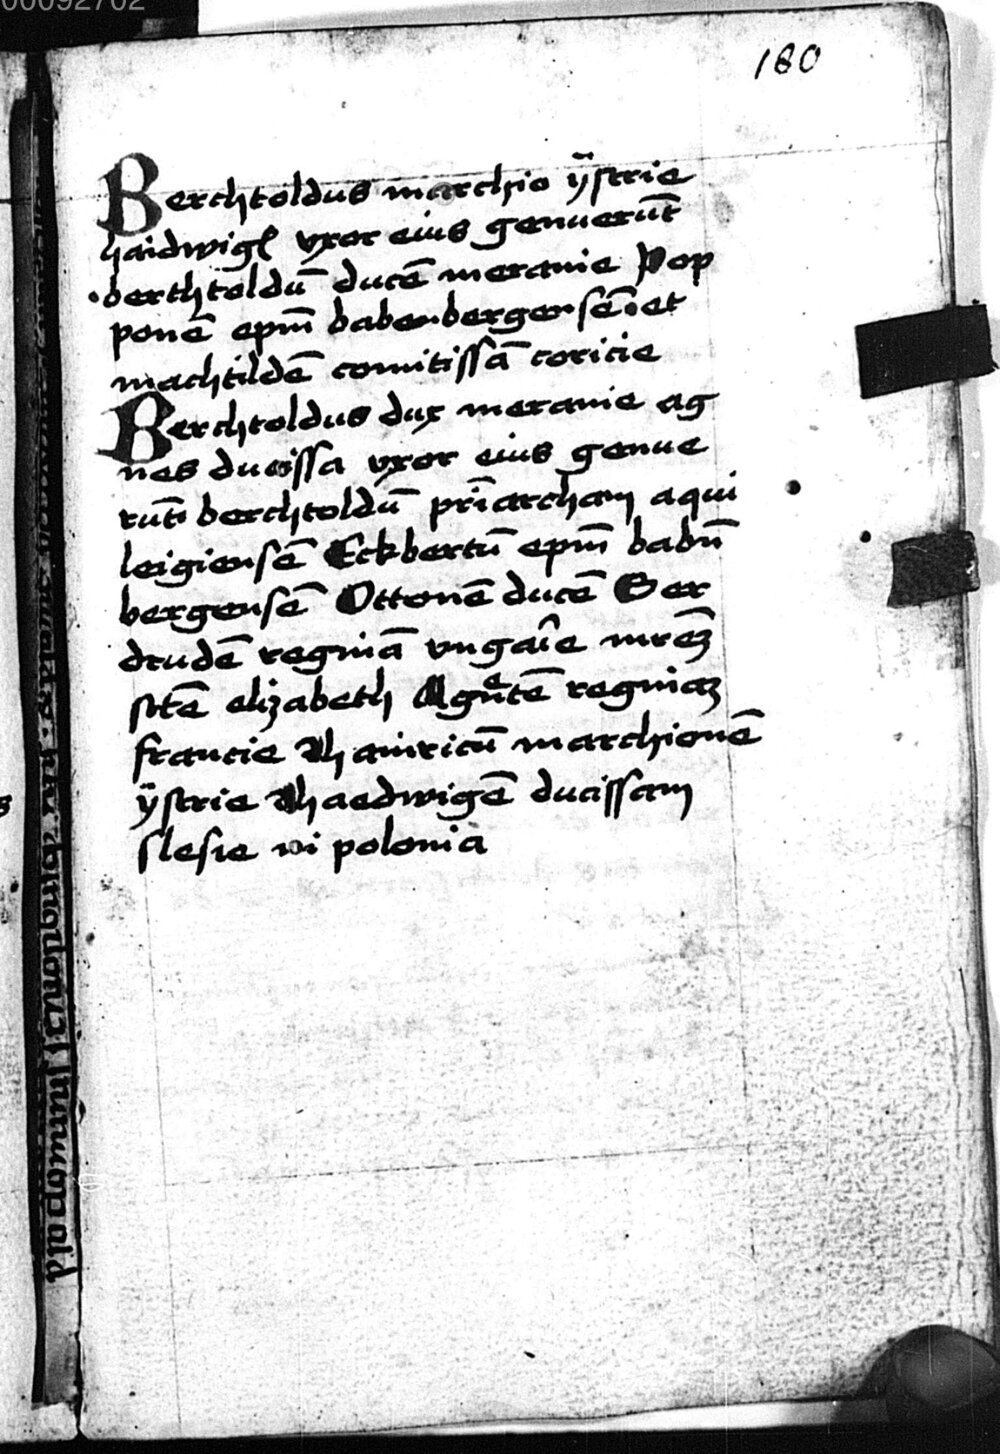 00092702
180
Berchtoldus marchio ÿstrie
haidwigꝭ vxor eius genuerūt
berthtoldū ducē meranie Pop
ponē epm̄ babenbergensē et
machtildē comitissā coricie
Berchtoldus dux meranie ag
nes ducissa vxor eius genue
rūt berchtoldū pr̄iarcham aqui
leigiensē Eckbertū epm̄ babn̄
bergensē Ottonē ducē Ger
drudē reginā vngaīe mrēȝ
sctē elizabeth Agnetē reginaȝ
francie Hainricū marchionē
ÿstrie Haedwigē ducissam
slesie vi polonia